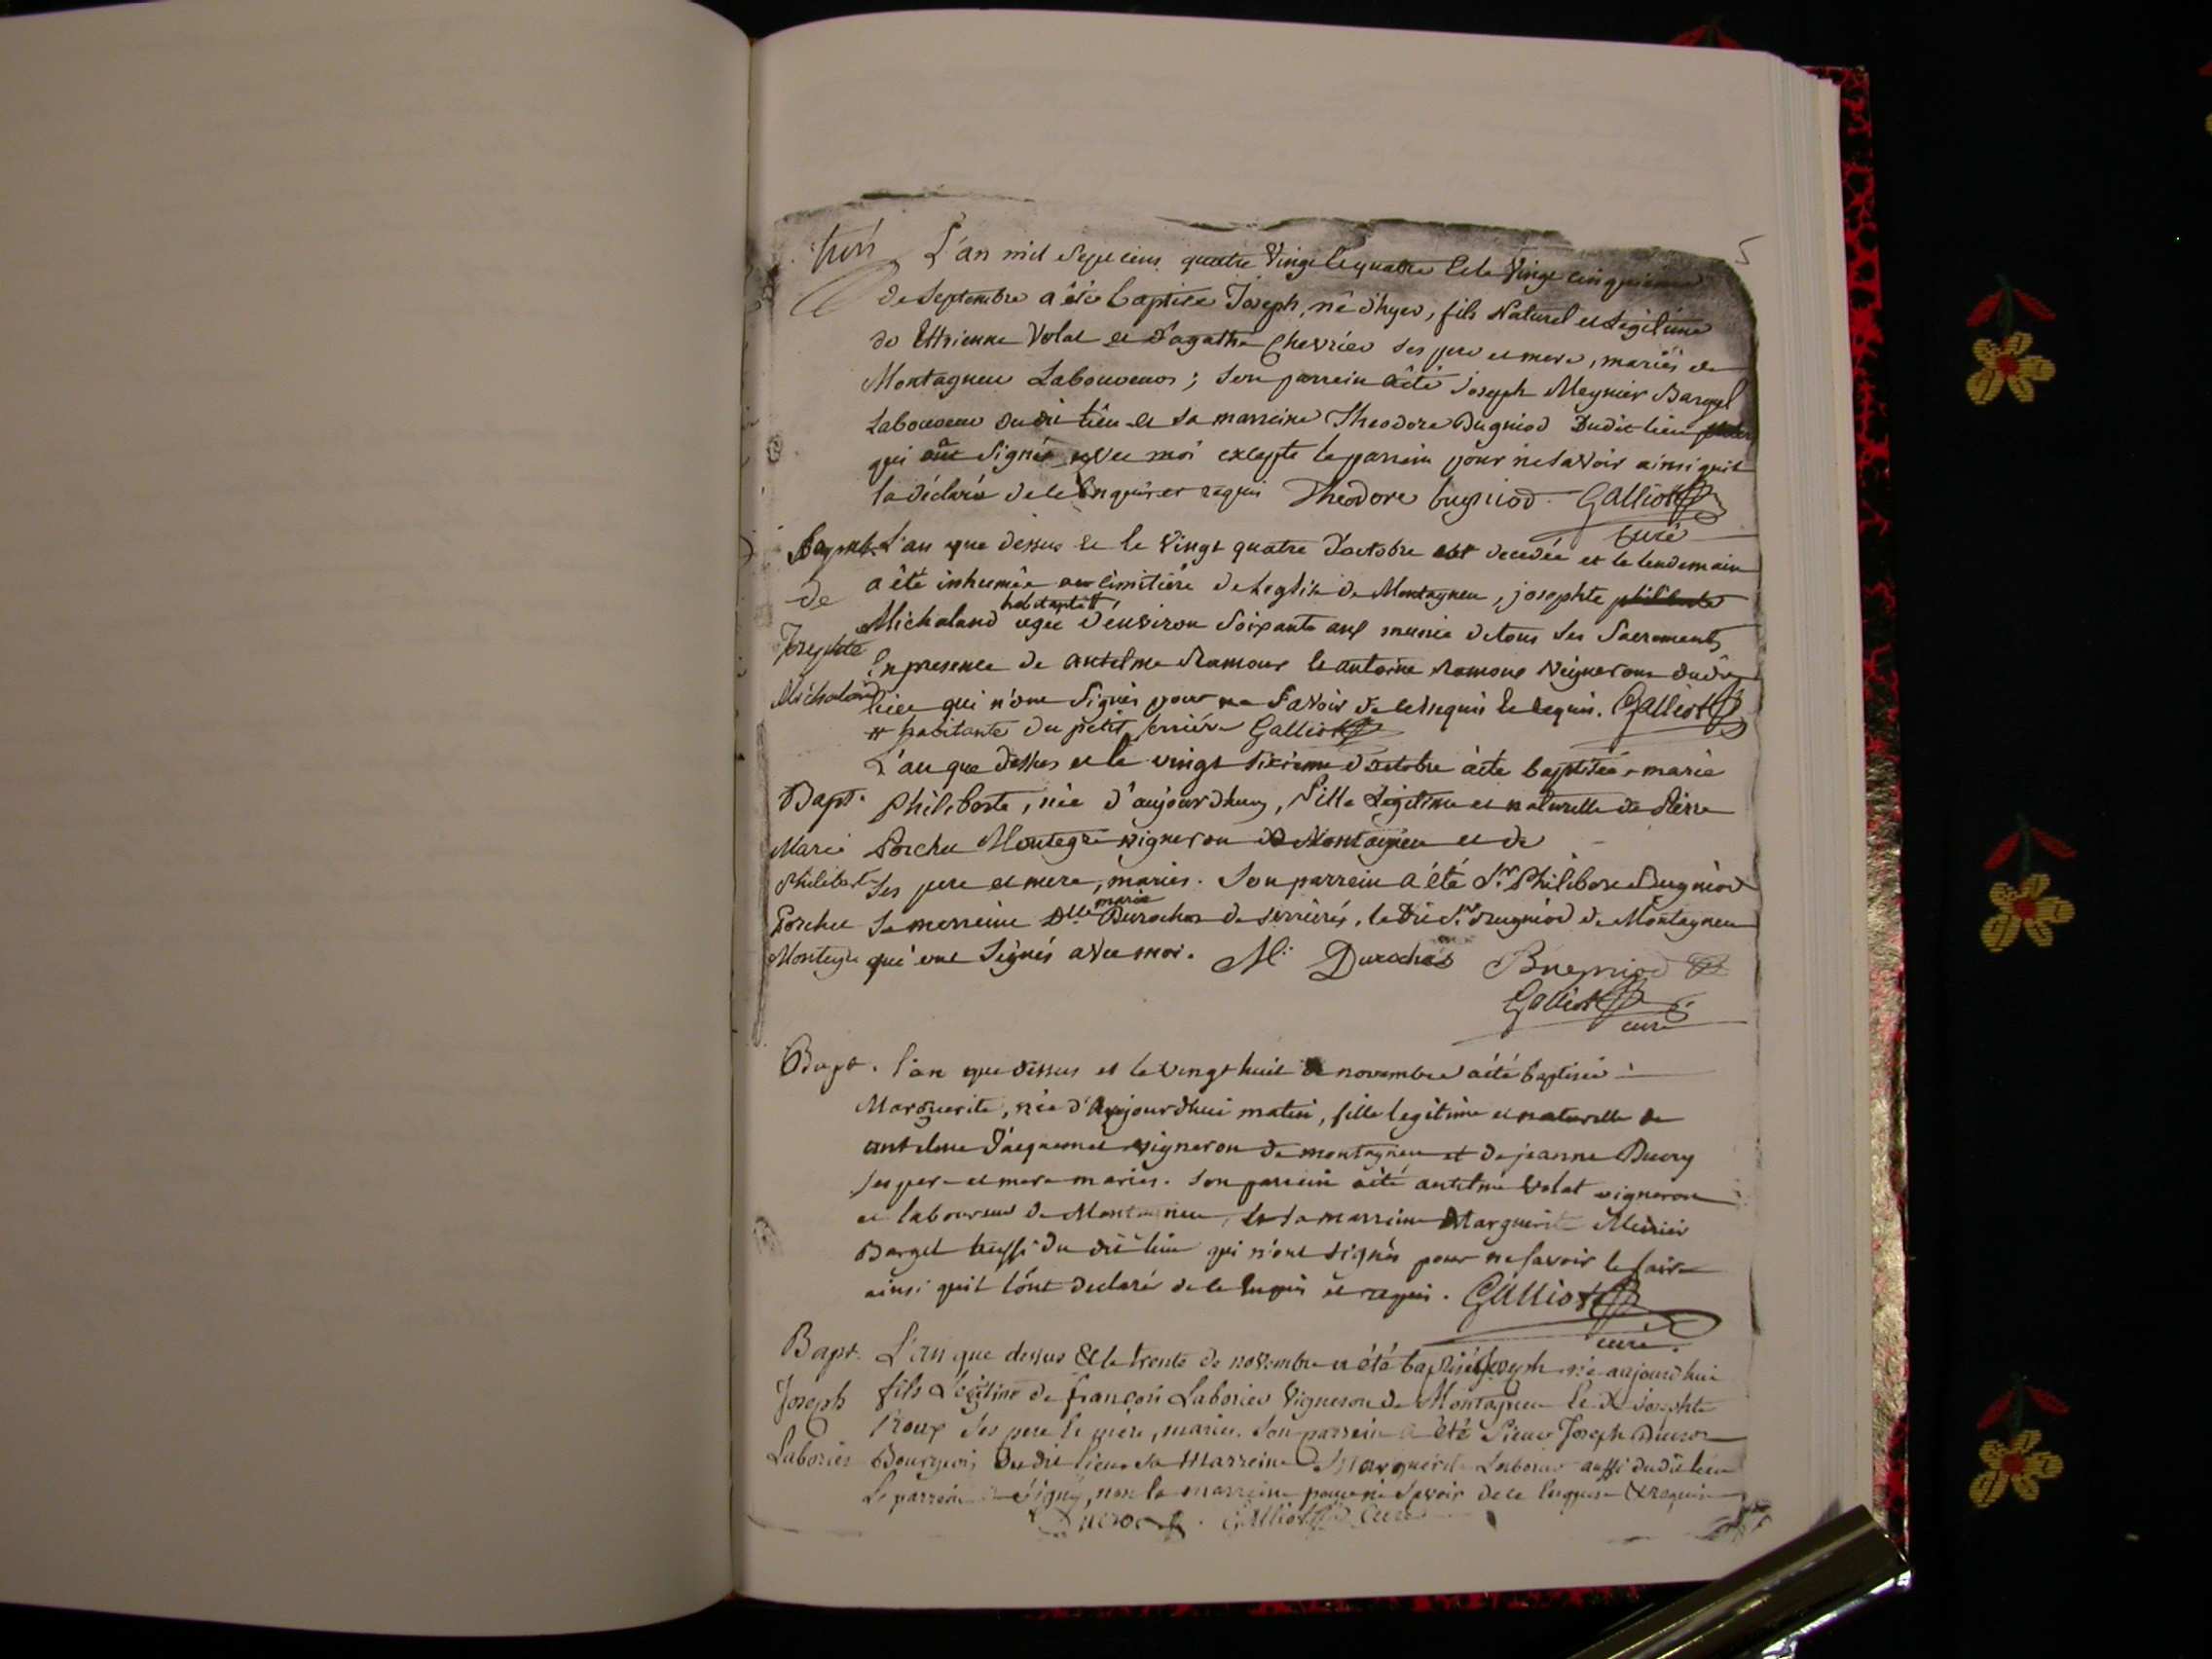 5
L'an mil sept cens quatre vingt le quatre & le vingt cinquieme
de septembre a été baptisé Joseph, né d'hyer, fils Naturel et Legitime
de Ettienne Volat et d'agathe Chevrier ses pere et mere, mariés de
Montagneu Laboureur; son parrein a été joseph Meynier Bargel
Laboureur du dit lieu et sa marreine Theodore Bugniod Dudit lieu
qui ont signé avec moi excepté le parrein pour ne savoir ainsi quil
la déclaré de ce Enquis et requis Theodore bugniod. Galliot
curé
L'an que dessus et le vingt quatre d'octobre est decedée et le lendemain
a été inhumée au cimitiére de Leglise de Montagneu, josephte philiberte
de
habitante
Michaland agée d'environ soixante ans munie de tous ses Sacrements
Josephte
En presence de antelme Ramoux et antoine Ramoux Vignerons dudit
Michaland
lieu qui n'ont signés pour ne savoir de ce enquis et requis. Galliot
# habitante du petit serriére Galliot
L'an que dessus et le vingt sixieme d'octobre a été baptisée marie
Bapt. philiberte, née d'aujourdhuy, fille Légitime et naturelle de Pierre
Marie Porchu Montegre vigneron de Montagneu et de
philiberte ses pere et mere, mariés. Son parrein a été Sr. Philibert Bugniod
marie
Porchu sa marreine Dlle Durochat de serriéres, le dit Sr. Bugniod de Montagneu
Montegre qui ont signés avec moi. M. Durochat Bugniod
Galliot
curé
Bapt. l'an que dessus et le vingt huit de novembre a été baptisée
Marguerite, née d'aujourdhui matin, fille legitime et naturelle de
antelme Jacquemet vigneron de montagneu et de jeanne Ducry
ses pere et mere mariés. Son parrein a été antelme Volat vigneron
et laboureur de Montagneu, et sa marreine Marguerite Meinier
Bargel aussi du dit lieu qui n'ont signés pour ne savoir le faire
ainsi quil l'ont declaré de ce enquis et requis. Galliot
curé.
Bapt. L'an que dessus & le trente de novembre a été baptisé Joseph né aujourdhui
Joseph fils Légitime de françois Laborier Vigneron de Montagneu et de Josephte
Roux ses pere et mere, mariés. Son parrein a été Sieur Joseph Ducros
Laborier Bourgeois Dudit lieu sa Marreine Marguerite Laborier aussi dudit lieu
Le parrein a signé, non la marreine pour ne savoir de ce enquise & requise
Ducros. Galliot Curé